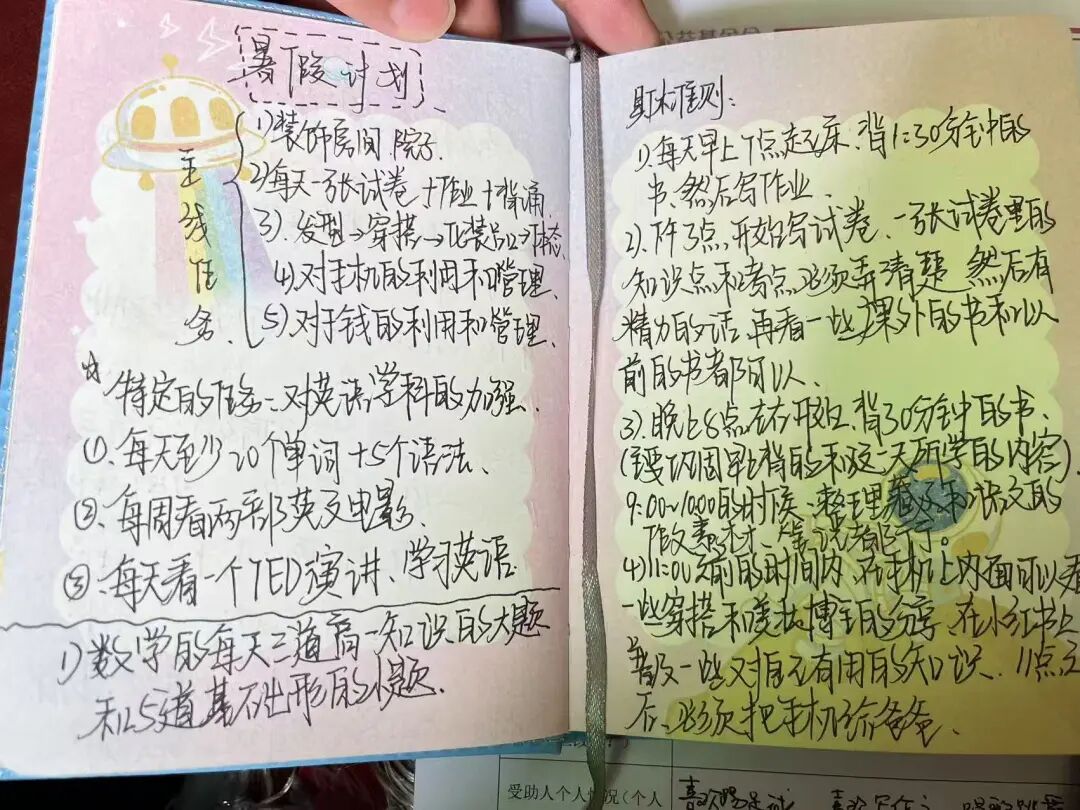 暑假计划
主线任务
1)装饰房间、院子.
2)每天一张试卷+作业+背诵.
3).发型→穿搭→化装品→体态.
4)对手机的利用和管理.
5)对于钱的利用和管理.
☆特定的任务:对英语学科的加强.
①.每天至少20个单词+5个语法、
②.每周看两部英文电影.
③.每天看一个TED演讲、学习英语.
1)数学的每天三道高一知识的大题
和5道基础形的小题.
准则:
1).每天早上7点起床.背 30分钟的
书.然后写作业.
2).下午3点,开始写试卷,一张试卷里的
知识点和考点,必须弄清楚.然后有
精力的话,再看一些课外的书和以
前的书都可以、
3).晚上8点左右开始.背30分钟的书、
(主要巩固早上背的和这一天所学的内容).
9:00~10:00的时候、整理 和语文的
素材、 都行。
4)11:00之前的时间内、在手机上 面可以看
一些穿搭和 博主的分享、在小红书上
普及一些对自己有用的知识、11点之
后、必须把手机给爸爸.
公共基金会
受助人个人情况(个人
喜欢
喜欢